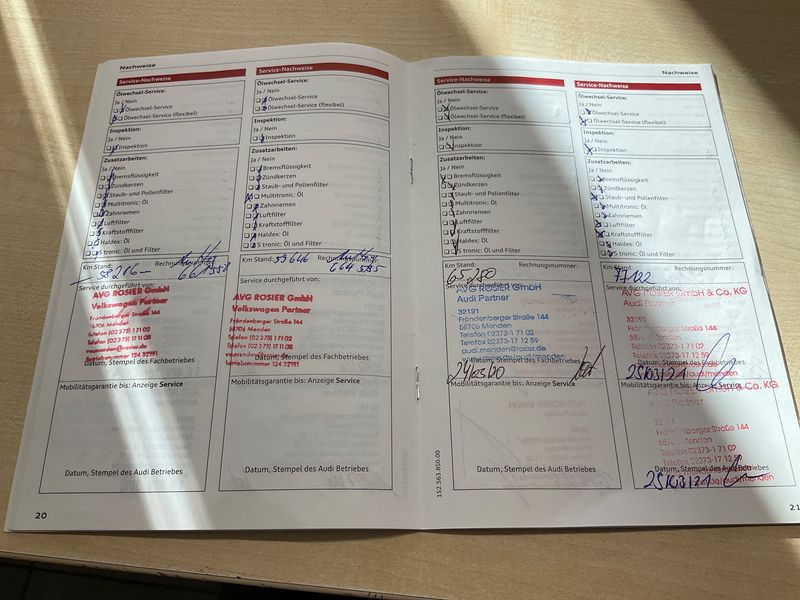 Nachweise
Service-Nachweise
Ölwechsel-Service:
Ja / Nein
Ölwechsel-Service
Ölwechsel-Service (flexibel)
Inspektion:
Ja / Nein
Inspektion
Zusatzarbeiten:
Ja / Nein
Bremsflüssigkeit
Zündkerzen
Staub- und Pollenfilter
Multitronic: Öl
Zahnriemen
Luftfilter
Kraftstofffilter
Haldex: Öl
S tronic: Öl und Filter
Km Stand:
Service durchgeführt von:
AVG ROSIER GmbH
Volkswagen Partner
Fröndenberger Straße 144
58706 Menden
Telefon (02373) 171 02
Telefax (02373) 17 11 08
vw.menden@rosier.de
Betriebsnummer 124 32191
Datum, Stempel des Fachbetriebes
Mobilitätsgarantie bis: Anzeige Service
Datum, Stempel des Audi Betriebes
20
Service-Nachweise
Ölwechsel-Service:
Ja / Nein
Ölwechsel-Service
Ölwechsel-Service (flexibel)
Inspektion:
Ja / Nein
Inspektion
Zusatzarbeiten:
Ja / Nein
Bremsflüssigkeit
Zündkerzen
Staub- und Pollenfilter
Multitronic: Öl
Zahnriemen
Luftfilter
Kraftstofffilter
Haldex: Öl
S tronic: Öl und Filter
Km Stand: 59646
664 585
Service durchgeführt von:
AVG ROSIER GmbH
Volkswagen Partner
Fröndenberger Straße 144
58706 Menden
Telefon (02373) 171 02
Telefax (02373) 17 11 08
vw.menden@rosier.de
Betriebsnummer 124 32191
Datum, Stempel des Fachbetriebes
Mobilitätsgarantie bis: Anzeige Service
Datum, Stempel des Audi Betriebes
Service-Nachweise
Ölwechsel-Service:
Ja / Nein
Ölwechsel-Service
Ölwechsel-Service (flexibel)
Inspektion:
Ja / Nein
Inspektion
Zusatzarbeiten:
Ja / Nein
Bremsflüssigkeit
Zündkerzen
Staub- und Pollenfilter
Multitronic: Öl
Zahnriemen
Luftfilter
Kraftstofffilter
Haldex: Öl
S tronic: Öl und Filter
Km Stand: 65250
Rechnungsnummer:
Service durchgeführt von:
AVG ROSIER GmbH
Audi Partner
32191
Fröndenberger Straße 144
58706 Menden
Telefon 02373-1 71 02
Telefax 02373-17 12 59
audi.menden@rosier.de
Datum, Stempel des Fachbetriebes
24/03/20
Mobilitätsgarantie bis: Anzeige Service
Datum, Stempel des Audi Betriebes
152.563.850.00
Nachweise
Service-Nachweise
Ölwechsel-Service:
Ja / Nein
Ölwechsel-Service
Ölwechsel-Service (flexibel)
Inspektion:
Ja / Nein
Inspektion
Zusatzarbeiten:
Ja / Nein
Bremsflüssigkeit
Zündkerzen
Staub- und Pollenfilter
Multitronic: Öl
Zahnriemen
Luftfilter
Kraftstofffilter
Haldex: Öl
S tronic: Öl und Filter
Km Stand:
Rechnungsnummer:
Service durchgeführt von:
AVG ROSIER GmbH & Co. KG
Audi Partner
32191
Fröndenberger Straße 144
Menden
Telefon 02373-1 71 02
Telefax 02373-17 12 59
Datum, Stempel des Fachbetriebes
25/03/21
Mobilitätsgarantie bis: Anzeige Service
AVG ROSIER GmbH & Co. KG
Audi Partner
32191
Fröndenberger Straße 144
Menden
Telefon 02373-1 71 02
Telefax 02373-17 12 59
Datum, Stempel des Audi Betriebes
25/03/21
21